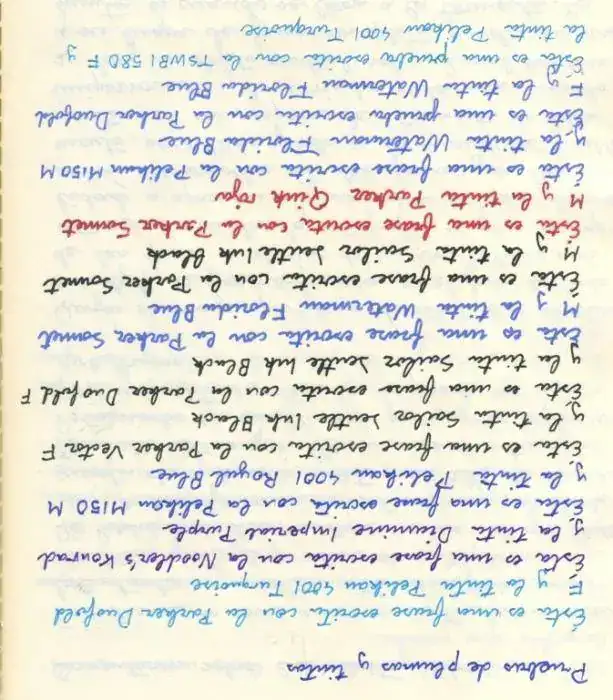 Pruebas de plumas y tintas
Ésta es una frase escrita con la Parker Duofold
F y la tinta Pelikan 4001 Turquoise
Ésta es una frase escrita con la Noodler's Konrad
y la tinta Diamine Imperial Purple
Ésta es una frase escrita con la Pelikan M150 M
y la tinta Pelikan 4001 Royal Blue
Ésta es una frase escrita con la Parker Vector F
y la tinta Sailor Jentle Ink Black
Ésta es una frase escrita con la Parker Duofold F
y la tinta Sailor Jentle Ink Black
Ésta es una frase escrita con la Parker Sonnet
M y la tinta Waterman Florida Blue
Ésta es una frase escrita con la Parker Sonnet
M y la tinta Sailor Jentle Ink Black
Ésta es una frase escrita con la Parker Sonnet
M y la tinta Parker Quink roja
Ésta es una frase escrita con la Pelikan M150 M
y la tinta Waterman Florida Blue
Ésta es una prueba escrita con la Parker Duofold
F y la tinta Waterman Florida Blue
Ésta es una prueba escrita con la TSWBI 580 F y
la tinta Pelikan 4001 Turquoise